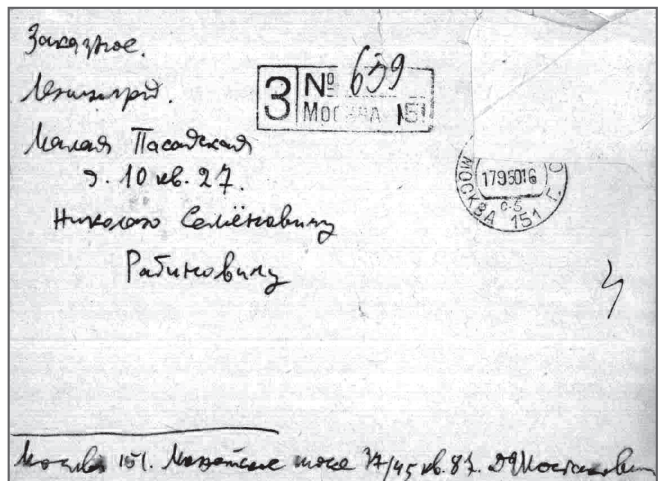 Заказное.
Ленинград.
Малая Пасадская
д. 10 кв. 27.
Николаю Семёновичу
Рабиновичу
З № 659
МОСКВА 151
МОСКВА 151 Г. С.
1795016
с-5
Москва 151. Можайское шоссе 37/45 кв. 87. ДШостакович